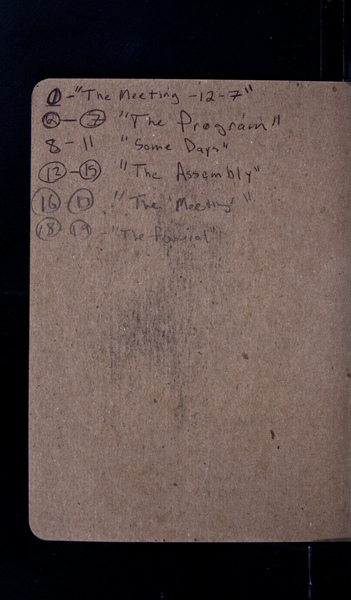 1 - "The Meeting - 12 - 7"
6 - 7 "The Program"
8 - 11 "Some Days"
12 - 15 "The Assembly"
16 - 17 "The Meeting"
18 19 - "The